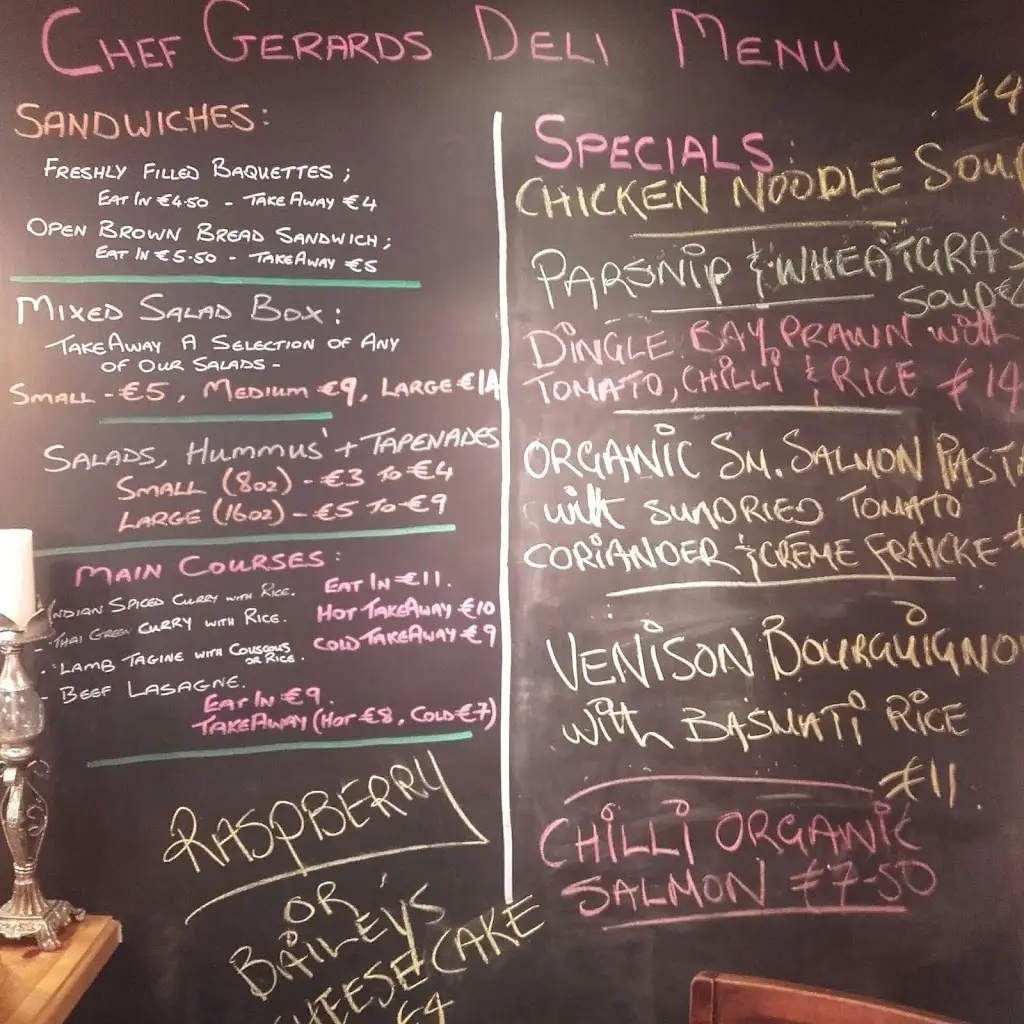 CHEF GERARDS DELI MENU
SANDWICHES:
FRESHLY FILLED BAQUETTES;
EAT IN €4.50 - TAKE AWAY €4
OPEN BROWN BREAD SANDWICH;
EAT IN €5.50 - TAKEAWAY €5
MIXED SALAD BOX:
TAKEAWAY A SELECTION OF ANY
OF OUR SALADS-
SMALL - €5, MEDIUM €9, LARGE €14
SALADS, HUMMUS' + TAPENADES
SMALL (8oz) - €3 TO €4
LARGE (16oz) - €5 TO €9
MAIN COURSES:
INDIAN SPICED CURRY WITH RICE.
- THAI GREEN CURRY WITH RICE.
- LAMB TAGINE WITH COUSCOUS
OR RICE.
- BEEF LASAGNE.
EAT IN €11.
HOT TAKEAWAY €10
COLD TAKEAWAY €9
EAT IN €9.
TAKEAWAY (HOT €8, COLD €7)
RASPBERRY
OR
BAILEY'S
CHEESECAKE
€4
€4
SPECIALS:
CHICKEN NOODLE SOUP
PARSNIP & WHEATGRAS
SOUP €
DINGLE BAY PRAWN with
TOMATO, CHILLI & RICE €14
ORGANIC SM. SALMON PASTA
with SUNDRIED TOMATO
CORIANDER & CRÈME FRAICKE €
VENISON BOURGUIGNO
with BASMATI RICE
€11.
CHILLI ORGANIC
SALMON €7-50